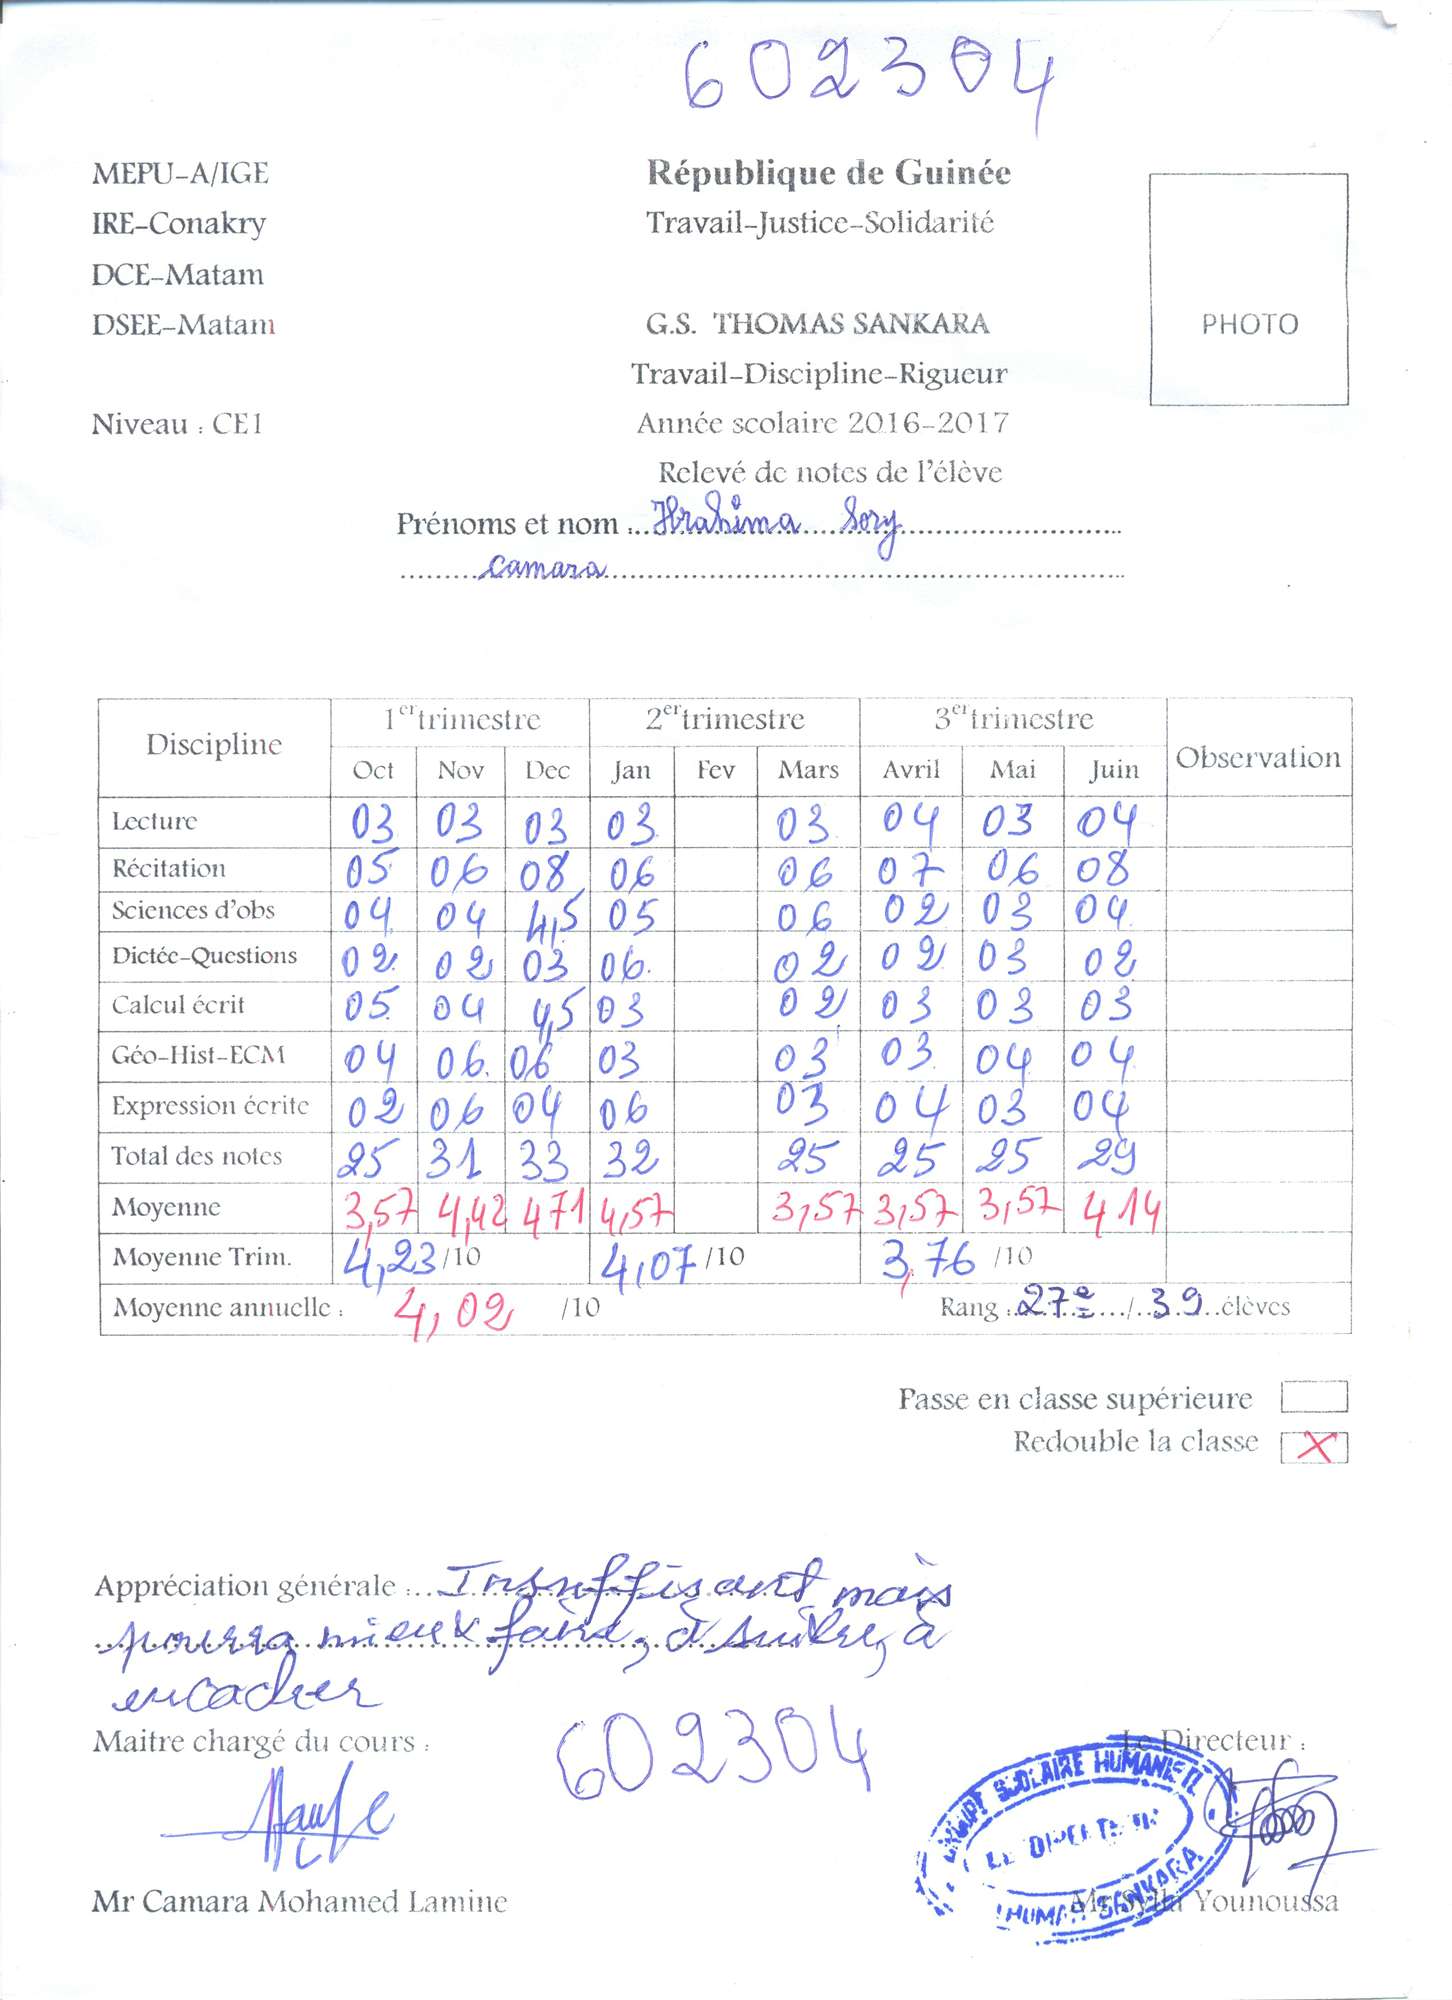 602304
MEPU-A/IGE République de Guinée
IRE-Conakry Travail-Justice-Solidarité
DCE-Matam
DSEE-Matam G.S. THOMAS SANKARA PHOTO
Travail-Discipline-Rigueur
Niveau : CE1 Année scolaire 2016-2017
Relevé de notes de l'élève
Prénoms et nom : Ibrahima Sory
Camara
Discipline 1er trimestre 2er trimestre 3er trimestre Observation
Oct Nov Dec Jan Fev Mars Avril Mai Juin
Lecture 03 03 03 03 03 04 03 04
Récitation 05 06 08 06 06 07 06 08
Sciences d'obs 04 04 4,5 05 06 02 03 04
Dictée-Questions 02 02 03 06 02 02 03 02
Calcul écrit 05 04 4,5 03 02 03 03 03
Géo-Hist-ECM 04 06 06 03 03 03 04 04
Expression écrite 02 06 04 06 03 04 03 04
Total des notes 25 31 33 32 25 25 25 29
Moyenne 3,57 4,42 471 4,57 3,57 3,57 3,57 414
Moyenne Trim. 4,23 /10 4,07 /10 3,76 /10
Moyenne annuelle : 4,02 /10 Rang : 27e / 39 élèves
Passe en classe supérieure
Redouble la classe X
Appréciation générale : Insuffisant mais
pourra mieux faire, à suivre, à
encadrer
Maitre chargé du cours : 602304 Le Directeur :
LE DIRECTEUR
SANKARA
Mr Camara Mohamed Lamine Mr Sylla Younoussa